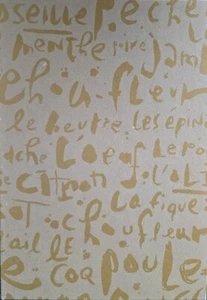 oseille pêche
menthe poivre jam
chou fleur
le beurre les épin
ache L'oeuf Le po
se citron l'oLi
ot chou fleur
La figue
ail LE
e coq poule